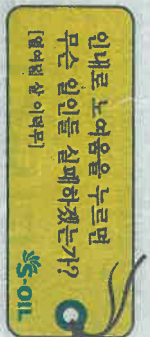 인내로 노여움을 누르면
무슨 일인들 실패하겠는가?
[열여덟 살 이덕무]
S-OIL